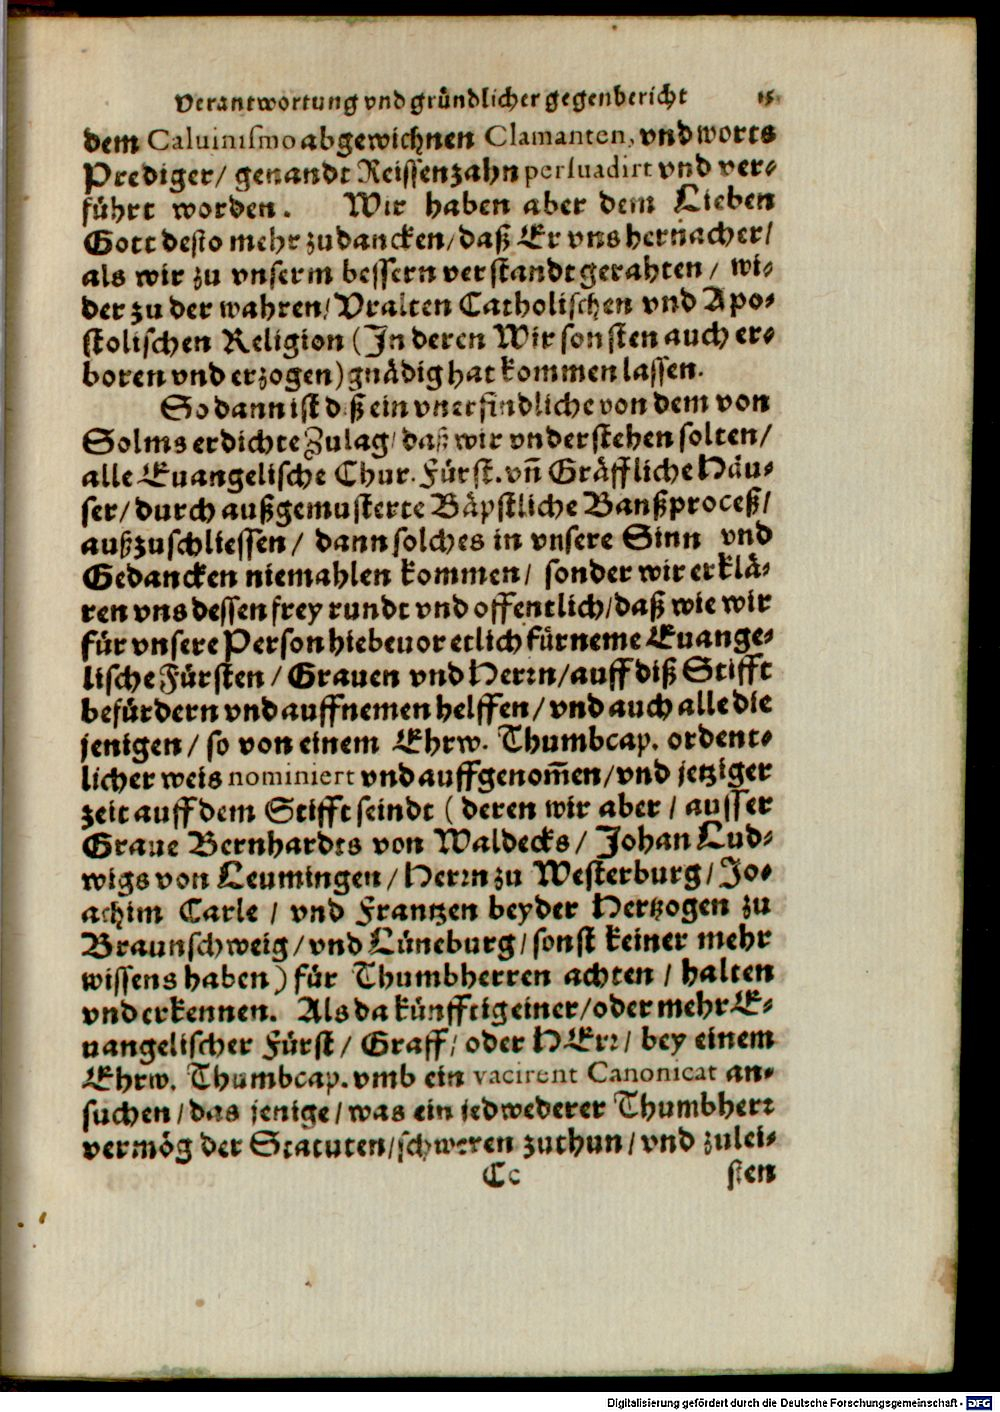 Verantwortung vnd gründlicher gegenbericht 15
dem Caluinismo abgewichnen Clamanten, vnd worts
Prediger/ genandt Reissenzahn persuadirt vnd ver-
führt worden. Wir haben aber dem Lieben
Gott desto mehr zu dancken/ daß Er vns hernacher/
als wir zu vnserm bessern verstandt gerahten/ wi-
der zu der wahren/ Vralten Catholischen vnd Apo-
stolischen Religion (In deren Wir sonsten auch er-
boren vnd erzogen) gnädig hat kommen lassen.
So dann ist diß ein vnerfindliche von dem von
Solms erdichte Zulag/ daß wir vnderstehen solten/
alle Euangelische Chur. Fürst. vñ Gräffliche Häu-
ser/ durch außgemusterte Bäpstliche Banßproceß/
außzuschliessen/ dann solches in vnsere Sinn vnd
Gedancken niemahlen kommen/ sonder wir erklä-
ren vns dessen frey rundt vnd offentlich/ daß wie wir
für vnsere Person hiebeuor etlich fürneme Euange-
lische Fürsten/ Grauen vnd Herrn/ auff diß Stifft
befürdern vnd auffnemen helffen/ vnd auch alle die
jenigen/ so von einem Ehrw. Thumbcap. ordent-
licher weis nominiert vnd auffgenom̃en/ vnd jetziger
zeit auff dem Stifft seindt (deren wir aber/ ausser
Graue Bernhardts von Waldecks/ Johan Lud-
wigs von Leumingen/ Herrn zu Westerburg/ Jo-
achim Carle/ vnd Frantzen beyder Hertzogen zu
Braunschweig/ vnd Lüneburg/ sonst keiner mehr
wissens haben) für Thumbherren achten/ halten
vnd erkennen. Als da künfftig einer/ oder mehr E-
uangelischer Fürst/ Graff/ oder HErr/ bey einem
Ehrw. Thumbcap. vmb ein vacirent Canonicat an-
suchen/ das jenige/ was ein jedwederer Thumbherr
vermög der Statuten/ schweren zuthun/ vnd zulei-
Cc sten
Digitalisierung gefördert durch die Deutsche Forschungsgemeinschaft - DFG